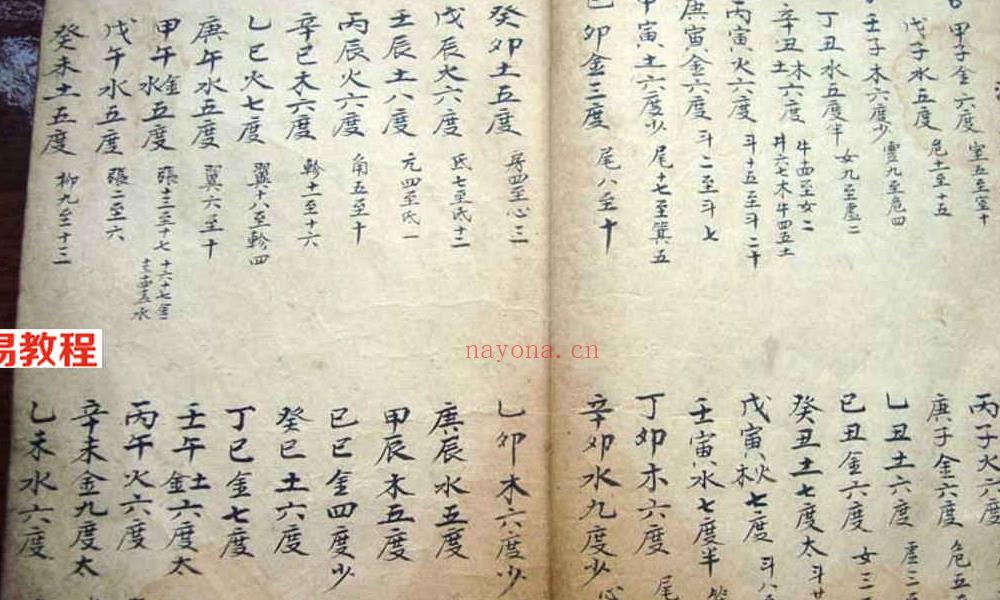 甲子金六度 室五至室十
戊子水五度 危十至十五
壬子木六度少 虚九至危四
丁丑水五度半 女九至虚二
辛丑木土六度 牛四至女二
斗六七木牛四五土
丙寅火六度 斗十五至斗二十
庚寅金六度 斗二至斗七
甲寅土六度少 尾十七至箕五
己卯金三度 尾八至十
丙子火六度
庚子金六度 危五
乙丑土六度 虚二
己丑金六度 女三
癸丑土七度太 斗廿
戊寅秋七度 斗八
壬寅水七度半 箕
丁卯木六度 尾
辛卯水九度少 心
癸卯土五度 房四至心三
戊辰火六度 氐七至氐十二
壬辰土八度 亢四至氐一
丙辰火六度 角五至十
辛巳木六度 軫十一至十六
乙巳火七度 翼十八至軫四
庚午水五度 翼六至十
甲午金水五度 張十三至十七
十六十七金
十三十四十五水
戊午水五度 張二至六
癸未土五度 柳九至十三
乙卯木六度少
庚辰水五度
甲辰木五度
己巳金四度少
癸巳土六度
丁巳金七度
壬午土金六度太
丙午火六度
辛未金九度太
乙未水六度
易教程
nayona.cn